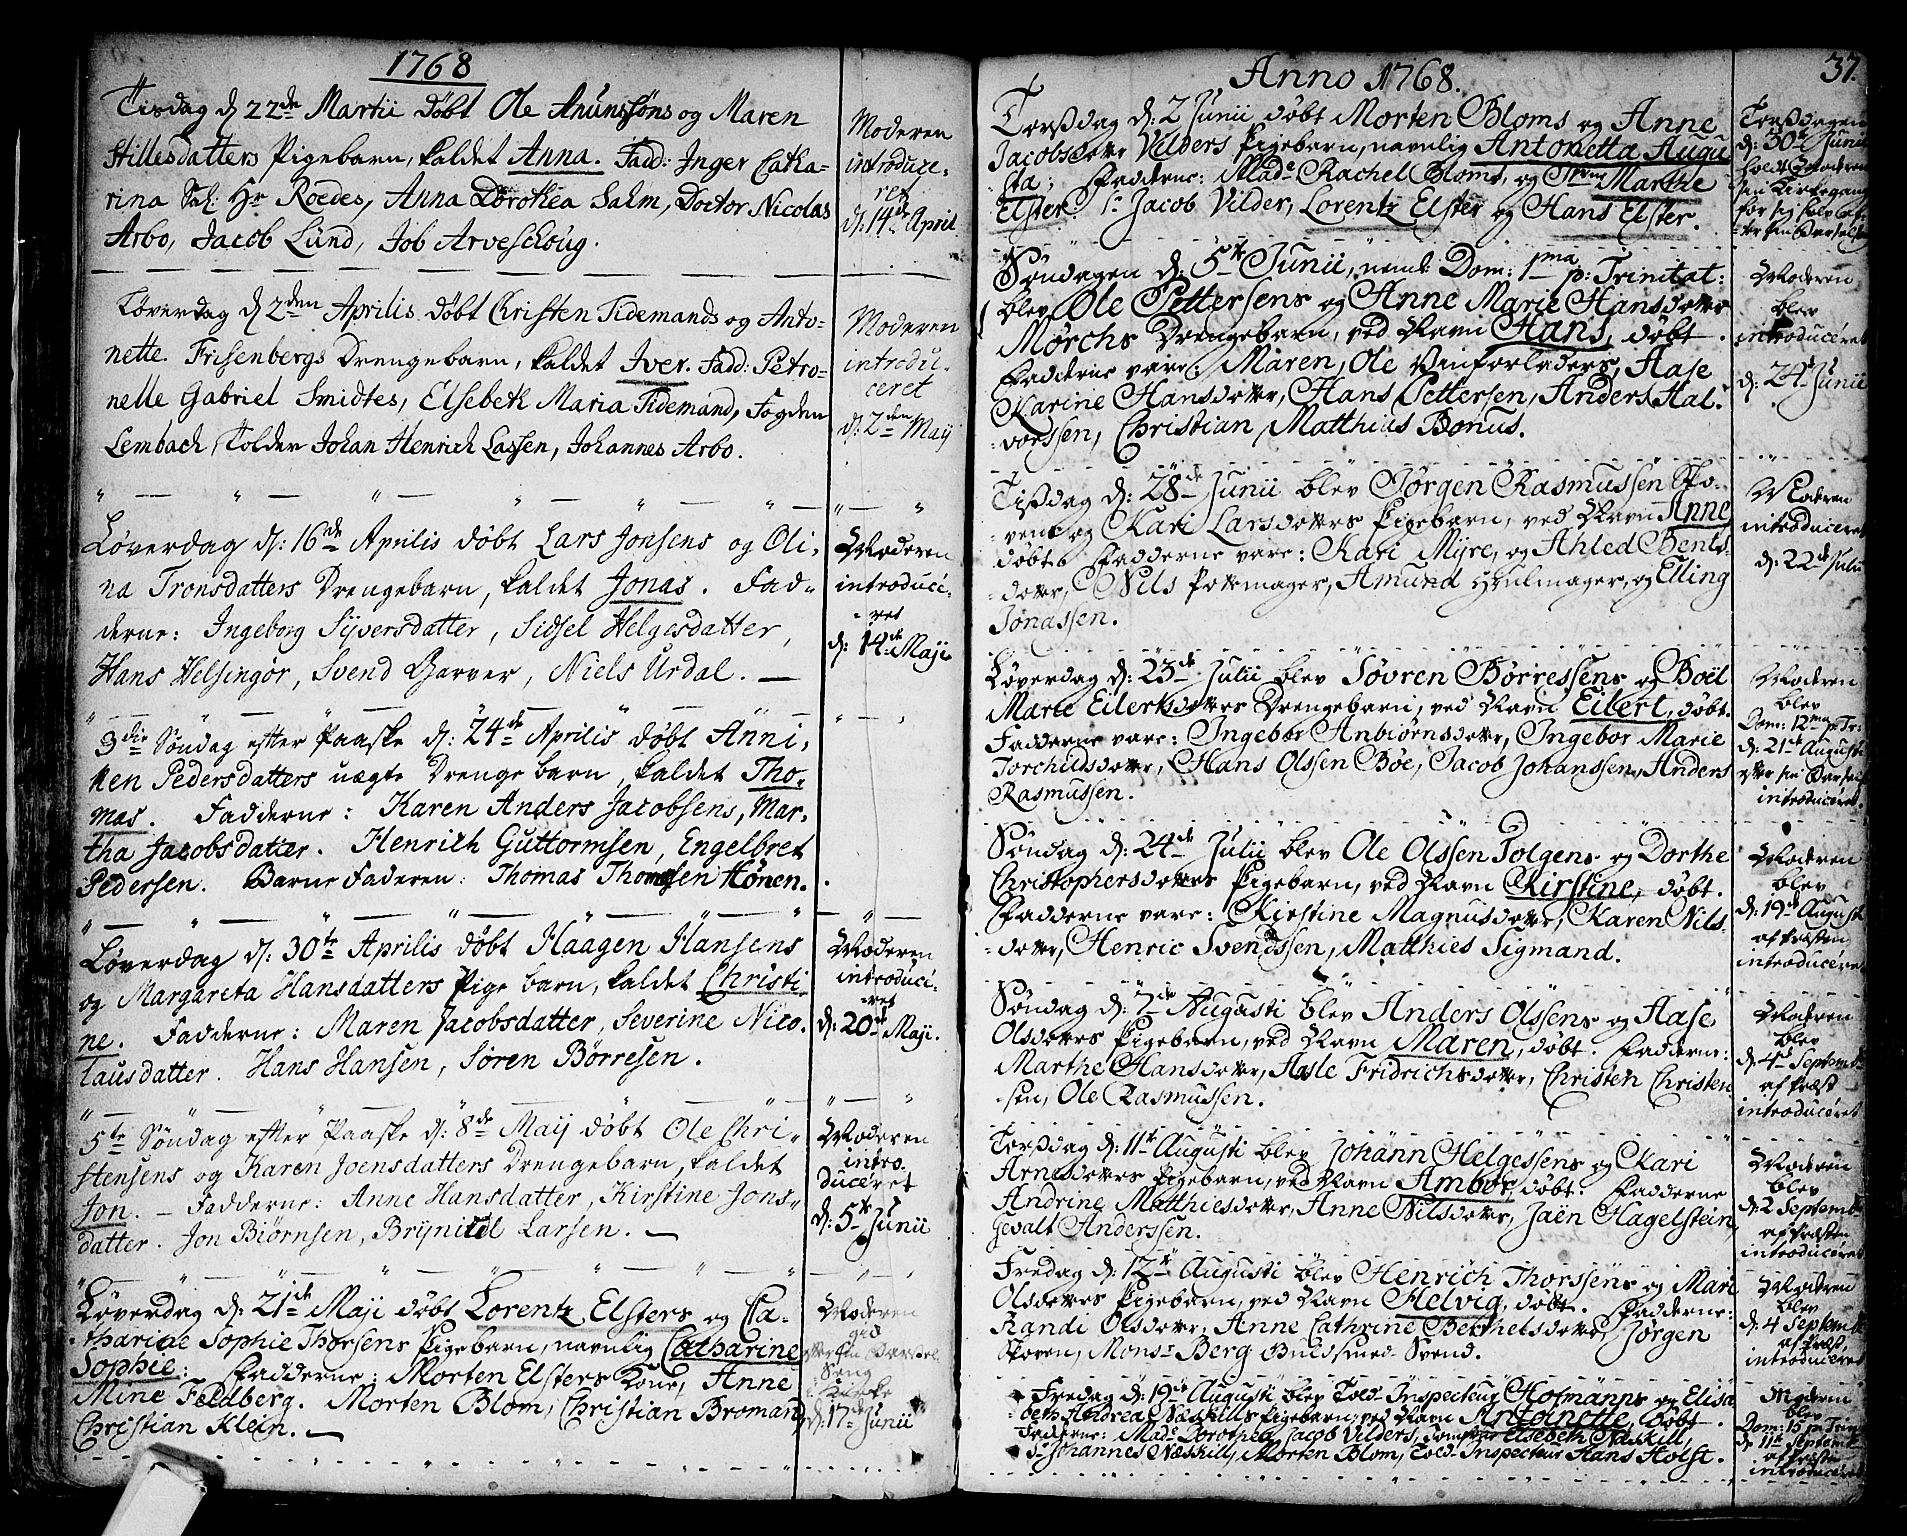 1768
Tisdag d 22de Martii døbt Ole Anunssøns og Maren
Stillesdatters Pigebarn, kaldet Anna. Fadd: Inger Catha-
rina Sal: Hr Roedes, Anna Dorothea Sahm, Doctor Nicolas
Arbo, Jacob Lund, Job Arveschoug.
Moderen
introduce-
ret
d: 14de April
Løverdag d 2den Aprilis døbt Christen Tidemands og Anto-
nette Frisenbergs Drengebarn, kaldet Iver. Fadd: Petro-
nelle Gabriel Smidtes, Elsebek Maria Tidemand, Fogden
Lembach, Tolder Johan Henrich Lassen, Johannes Arbo.
Moderen
introdu-
ceret
d: 2den Maij
Løverdag d: 16de Aprilis døbt Lars Jonsens og Oli-
na Tronsdatters Drengebarn, kaldet Jonas. Fad-
derne: Ingeborg Syversdatter, Sidsel Helgesdatter,
Hans Helsingør, Svend Garver, Niels Urdal.
Moderen
introduce-
ret
d: 14de Maji
3die Søndag efter Paaske d: 24de Aprilis døbt Anni-
ken Pedersdatters uægte Drenge barn, kaldet Tho-
mas. Fadderne: Karen Anders Jacobsens, Mar-
tha Jacobsdatter. Henrich Guttormsen, Engelbret
Pedersen. Barne Faderen: Thomas Thomesen Hønen.
Løverdag d: 30te Aprilis døbt Haagen Hansens
og Margareta Hansdatters Pige barn, kaldet Christi
ne. Fadderne: Maren Jacobsdatter, Severine Nico-
lausdatter. Hans Hansen, Søren Børresen.
Moderen
introduci-
ret
d: 20de Maji.
5te Søndag efter Paaske d: 8de Maij døbt Ole Chri-
stensens og Karen Joensdatters Drengebarn, kaldet
Jon. - Fadderne: Anne Hansdatter, Kirstine Jons-
datter. Jon Biørnsen, Brynild Larsen.
Moderen
intro-
duceret
d: 5te Junii
Løverdag d: 21de Maji døbt Lorentz Elsters og Ca-
tharine Sophie Thorsens Pigebarn, navnlig Catharine
Sophie: Fadderne: Morten Elsters Kone, Anne
Mine Feldberg. Morten Blom, Christian Bromand,
Christian Klein.
Moderen
d: 17de Junii
Anno 1768.
37.
Torsdag d: 2 Junii døbt Morten Bloms og Anne
Jacobsdotter Vilders Pigebarn, navnlig Antonetta Augu
sta; Fadderne: Mad: Rachel Bloms, og Marthe
Elster. Sr Jacob Vilder, Lorentz Elster og Hans Elster.
Torsdagen
d: 30te Junii
holdt Moderen
sin Kirkegang
Søndagen d: 5te Junii, neml: Dom: 1ma p: Trinitat:
blev Ole Pettersens og Anne Marie Hansdotter
Mørchs Drengebarn, ved Navn Hans, døbt.
Fadderne vare: Maren, Ole Vanforladers, Aase
Karine Hansdotter, Hans Pettersen, Anders Hal-
vorssen, Christian Matthias Bonus.
Moderen
blev
introduceret
d: 24de Junii
Tisdag d: 28de Junii blev Jørgen Rasmussen Sko-
vens og Kari Larsdotters Pigebarn, ved Navn Anne
døbt. Fadderne vare: Kari Myre, og Ahled Bents-
dotter, Nils Pottemager, Amund Hiulmager, og Elling
Jonassen.
Moderen
introduceret
d: 22de Julii
Løverdag d: 23de Julii blev Søvren Børressens og Boël
Marie Eilertsdotters Drengebarn, ved Navn Eilert, døbt.
Fadderne vare: Ingebor Anbiørnsdotter, Ingebor Marie
Torchildsdotter, Hans Olssen Bøe, Jacob Johanssen, Anders
Rasmussen.
Moderen
blev
Dom: 12ma p: Tr:
d: 21de Augusti
efter sin Barsel
introduceret.
Søndag d: 24de Julii blev Ole Olssen Tolgens og Dorthe
Christophersdotters Pigebarn, ved Navn Kirstine, døbt.
Fadderne vare: Kirstine Magnusdotter, Karen Nils-
dotter, Henric Svendssen, Matthies Sigmand.
Moderen
blev
d: 19de Augusti
af Præsten
introduceret
Søndag d: 7de Augusti blev Anders Olssens og Aase
Olsdotters Pigebarn, ved Navn Maren, døbt. Fadderne:
Marthe Hansdotter, Aasle Fridrichsdotter, Christen Christen-
sen, Ole Rasmussen.
Moderen
blev
d: 4de Septemb:
af Præst
introduceret
Torsdag d: 11te Augusti blev Johann Helgessens og Kari
Arnesdotters Pigebarn, ved Navn Ambor, døbt. Fadderne
Andrine Matthiesdotter, Anne Nilsdotter, Jaën Hagelstein,
Gevalt Anderssen.
Moderen
blev
d: 2 Septemb:
af Præsten
introduceret
Fredag d: 12te Augusti blev Henrich Thorssens og Mari
Olsdotters Pigebarn, ved Navn Helvig, døbt. Fadderne:
Randi Olsdotter, Anne Cathrine Berthelsdotter, Jørgen
Skoven, Mons: Berg Buldsmed-Svend.
Moderen
blev
d: 4 Septemb:
af Præst,
introduceret
Fredag d: 19de Augusti blev Told-Inspecteur Hofmanns og Elisa
beth Andrea Næskills Pigebarn, ved Navn Antoinette, døbt.
Fadderne: Mad: Dorothea Jacob Vilders, Jomfrue Elsebeth Næskill,
Sr Johannes Næskill, Morten Blom, Told-Inspecteur Hans Holst.
Moderen
blev
Dom: 15 p: Trin:
d: 11te Septemb:
af Præsten
introduceret